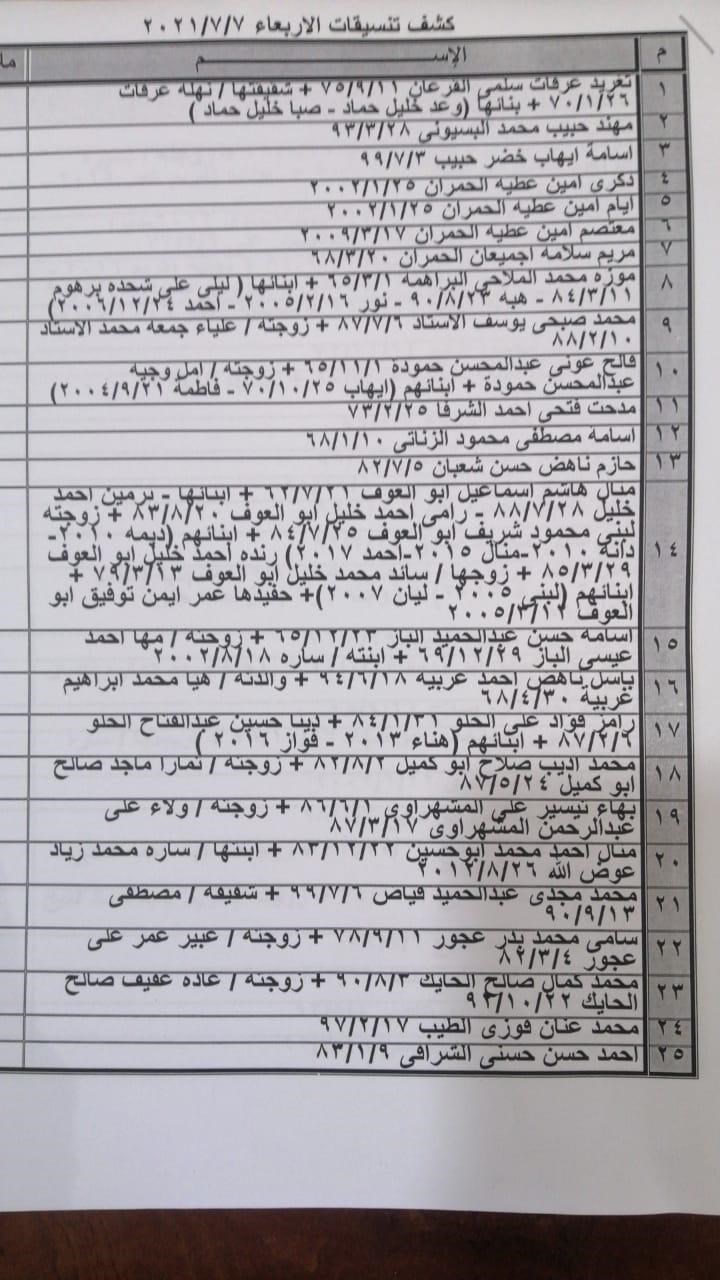 كشف تنسيقات الاربعاء ٢٠٢١/٧/٧
م الإســـــــم ما
١ تغريد عرفات سلمى القرعان ٧٥/٩/١١ + شقيقتها / نهله عرفات
٧٠/١/٢٦ + بناتها (وعد خليل حماد - صبا خليل حماد )
٢ مهند حبيب محمد البسيونى ٩٣/٣/٢٨
٣ اسامة ايهاب خضر حبيب ٩٩/٧/٣
٤ ذكرى امين عطيه الحمران ٢٠٠٢/١/٢٥
٥ ايام امين عطيه الحمران ٢٠٠٢/١/٢٥
٦ معتصم امين عطيه الحمران ٢٠٠٩/٣/١٧
٧ مريم سلامه اجميعان الحمران ٦٨/٣/٢٠
٨ موزه محمد الملاحى البراهمه ٦٥/٣/١ + ابنائها ( ليلى على شحده برهوم
٨٤/٣/١١ - هبه ٩٠/٨/٢٣ - نور ٢٠٠٥/٢/١٦ - احمد ٢٠٠٦/١٢/٢٤)
٩ محمد صبحى يوسف الاستاد ٨٧/٧/٦ + زوجته / علياء جمعه محمد الاستاد
٨٨/٢/١٠
١٠ فالح عونى عبدالمحسن حمودة ٦٥/١١/١ + زوجته / امل وجيه
عبدالمحسن حمودة + ابنائهم (ايهاب ٧٠/١٠/٢٥ - فاطمة ٢٠٠٤/٩/٢١)
١١ مدحت فتحى احمد الشرفا ٧٣/٢/٢٥
١٢ اسامه مصطفى محمود الزناتى ٦٨/١/١٠
١٣ حازم ناهض حسن شعبان ٨٢/٧/٥
١٤ منال هاشم اسماعيل ابو العوف ٦٢/٧/٢١ + ابنائها - نرمين احمد
خليل ٨٨/٧/٢٨ - رامى احمد خليل ابو العوف ٨٣/٨/٢٠ + زوجته
لبنى محمود شريف ابو العوف ٨٤/٧/٢٥ + ابنائهم (ديمه ٢٠١٠-
دانه ٢٠١٠-منال ٢٠١٥-احمد ٢٠١٧) رنده احمد خليل ابو العوف
٨٥/٣/٢٩ + زوجها / سائد محمد خليل ابو العوف ٧٩/٣/١٣ +
ابنائهم (لبنى ٢٠٠٥ - ليان ٢٠٠٧)+ حفيدها عمر ايمن توفيق ابو
العوف ٢٠٠٥/٣/١٢
١٥ اسامه حسن عبدالحميد الباز ٦٥/١٢/٢٣ + زوجته / مها احمد
عيسى الباز ٦٩/١٢/٢٩ + ابنته / ساره ٢٠٠٢/٨/١٨
١٦ باسل ناهض احمد غربيه ٩٤/٦/١٨ + والدته / هيا محمد ابراهيم
غربية ٦٨/٤/٣٠
١٧ رامز فؤاد على الحلو ٨٤/١/٣١ + دينا حسين عبدالفتاح الحلو
٨٧/٢/٦ + ابنائهم (هناء ٢٠١٣ - فواز ٢٠١٦ )
١٨ محمد اديب صلاح ابو كميل ٨٢/٨/٢ + زوجته / تمارا ماجد صالح
ابو كميل ٨٧/٥/٢٤
١٩ بهاء تيسير على المشهراوى ٨٦/٦/١ + زوجته / ولاء على
عبدالرحمن المشهراوى ٨٧/٣/١٧
٢٠ منال احمد محمد ابوحسين ٨٣/١٢/٢٢ + ابنتها / ساره محمد زياد
عوض الله ٢٠١٢/٨/٢٦
٢١ محمد مجدى عبدالحميد فياض ٩٩/٧/٦ + شقيقه / مصطفى
٩٠/٩/١٣
٢٢ سامى محمد بدر عجور ٧٨/٩/١١ + زوجته / عبير عمر على
عجور ٨٢/٣/٤
٢٣ محمد كمال صالح الحايك ٩٠/٨/٣ + زوجته / غاده عفيف صالح
الحايك ٩٢/١٠/٢٢
٢٤ محمد عنان فوزى الطيب ٩٧/٢/١٧
٢٥ احمد حسن حسنى الشرافى ٨٣/١/٩